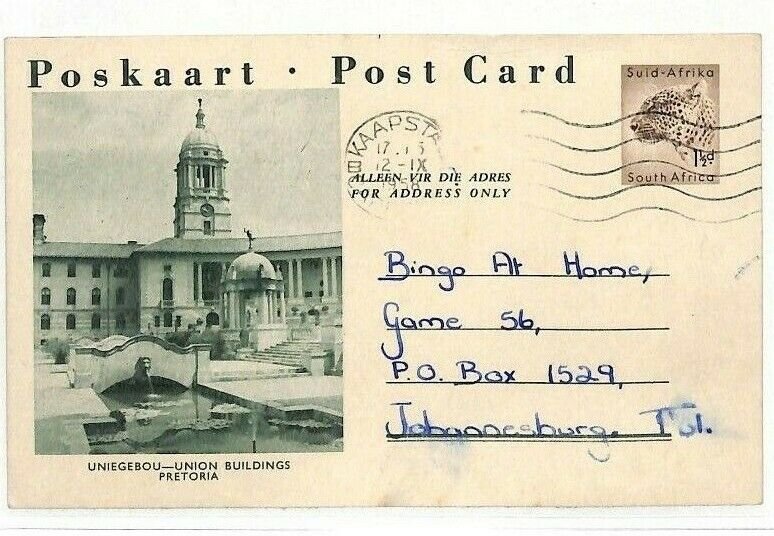 Poskaart · Post Card
Suid-Afrika
1½d
South Africa
KAAPSTA
12-IX
1958
ALLEEN VIR DIE ADRES
FOR ADDRESS ONLY
Bingo At Home,
Game 56,
P.O. Box 1529,
Johannesburg.
UNIEGEBOU—UNION BUILDINGS
PRETORIA